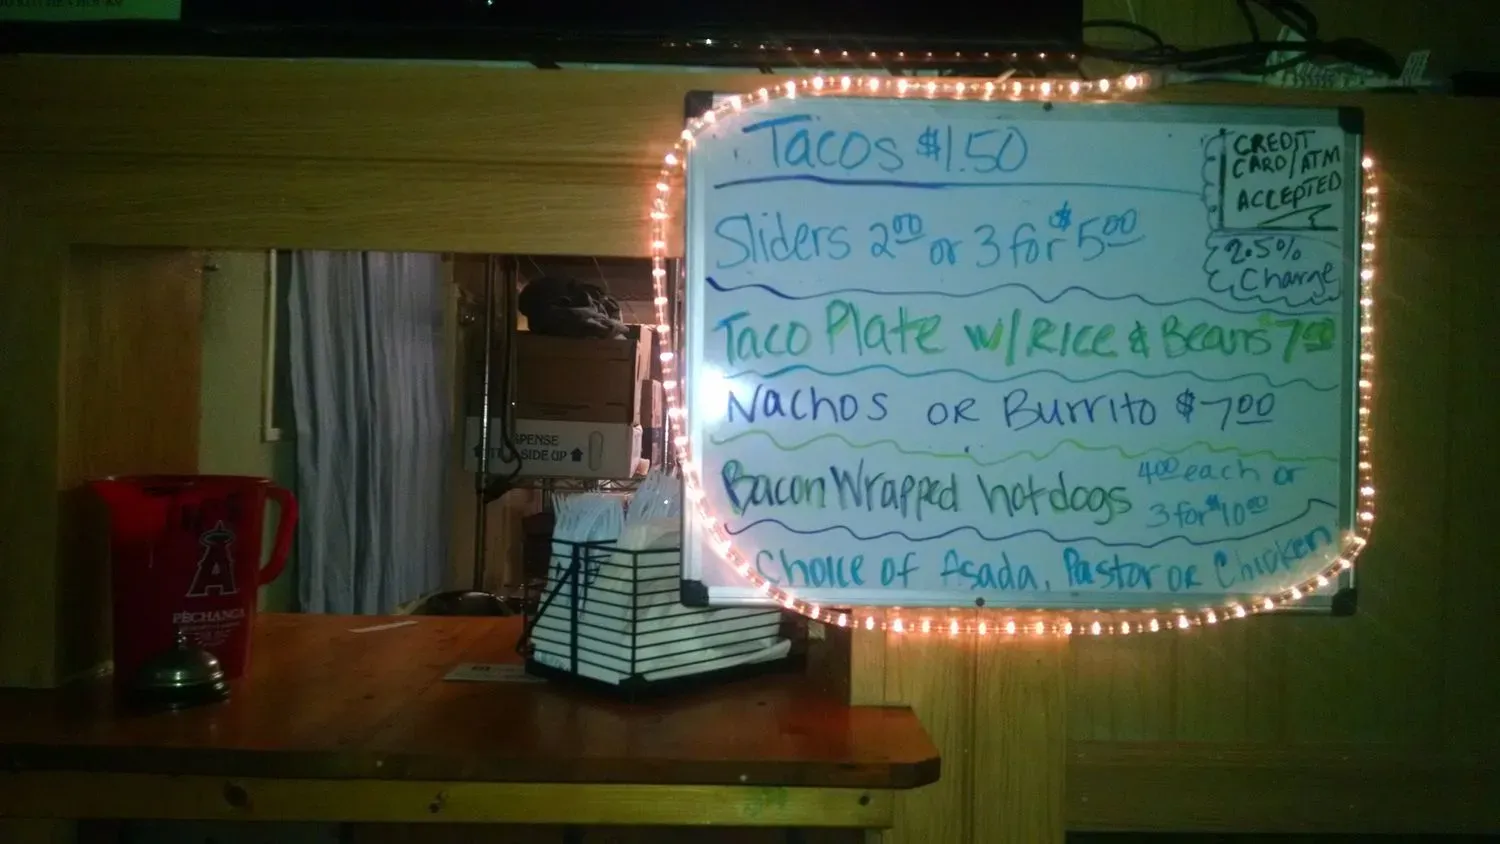 Tacos $1.50
CREDIT
CARD/ATM
ACCEPTED
2.5%
Charge
Sliders 2.00 or 3 for $5.00
Taco Plate w/Rice & Beans $7.00
Nachos or Burrito $7.00
Bacon Wrapped hotdogs 4.00 each or
3 for $10.00
Choice of Asada, Pastor or Chicken
SPENSE
SIDE UP
A
PECHANGA